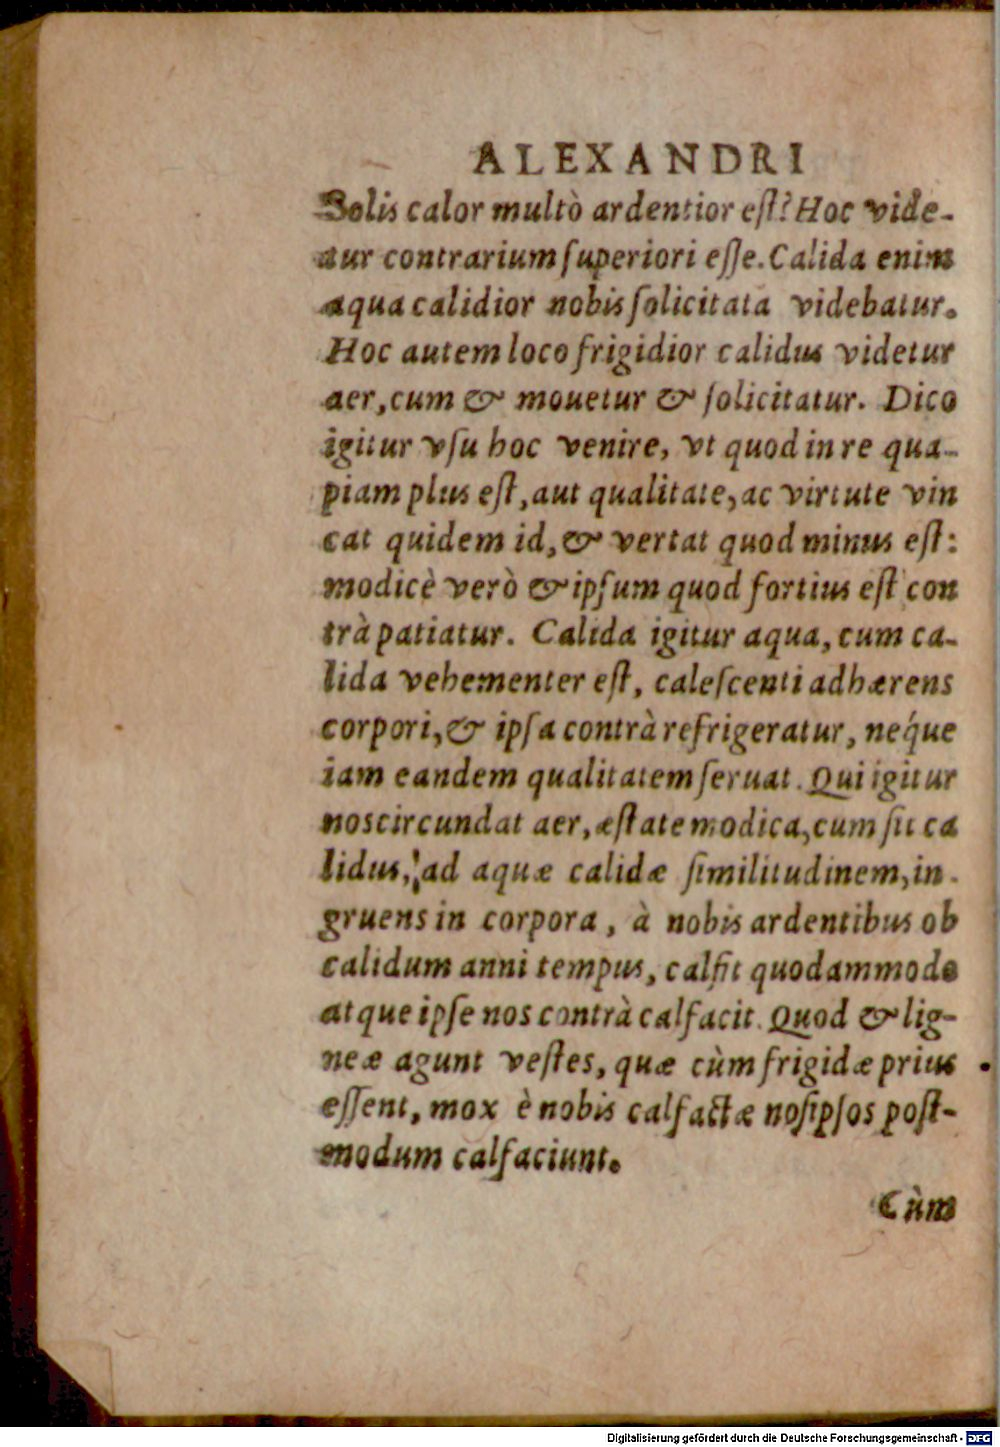 ALEXANDRI
Solis calor multò ardentior est? Hoc vide-
tur contrarium superiori esse. Calida enim
aqua calidior nobis solicitata videbatur.
Hoc autem loco frigidior calidus videtur
aer, cum & mouetur & solicitatur. Dico
igitur vsu hoc venire, vt quod in re qua-
piam plus est, aut qualitate, ac virtute vin
cat quidem id, & vertat quod minus est:
modicè verò & ipsum quod fortius est con
trà patiatur. Calida igitur aqua, cum ca-
lida vehementer est, calescenti adhærens
corpori, & ipsa contrà refrigeratur, neq́ue
iam eandem qualitatem seruat. Qui igitur
nos circundat aer, æstate modica, cum sit ca
lidus, ad aquæ calidæ similitudinem, in-
gruens in corpora, à nobis ardentibus ob
calidum anni tempus, calfit quodammodo
atque ipse nos contrà calfacit. Quod & lig-
neæ agunt vestes, quæ cùm frigidæ prius
essent, mox è nobis calfactæ nosipsos post-
modum calfaciunt.
Cùm
Digitalisierung gefördert durch die Deutsche Forschungsgemeinschaft - DFG